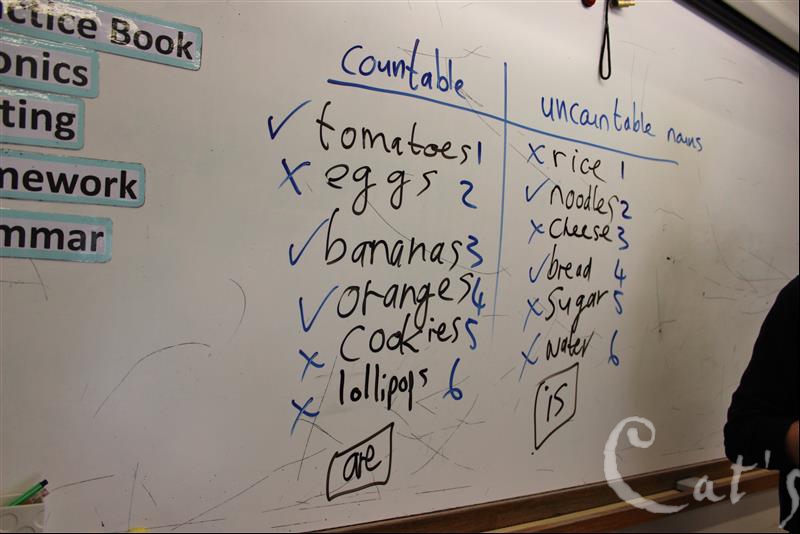 ctice Book
onics
ting
mework
mmar
countable
✓ tomatoes 1
x eggs 2
✓ bananas 3
✓ oranges 4
x cookies 5
x lollipops 6
are
uncountable nouns
x rice 1
✓ noodles 2
x cheese 3
✓ bread 4
x sugar 5
x water 6
is
Cat's